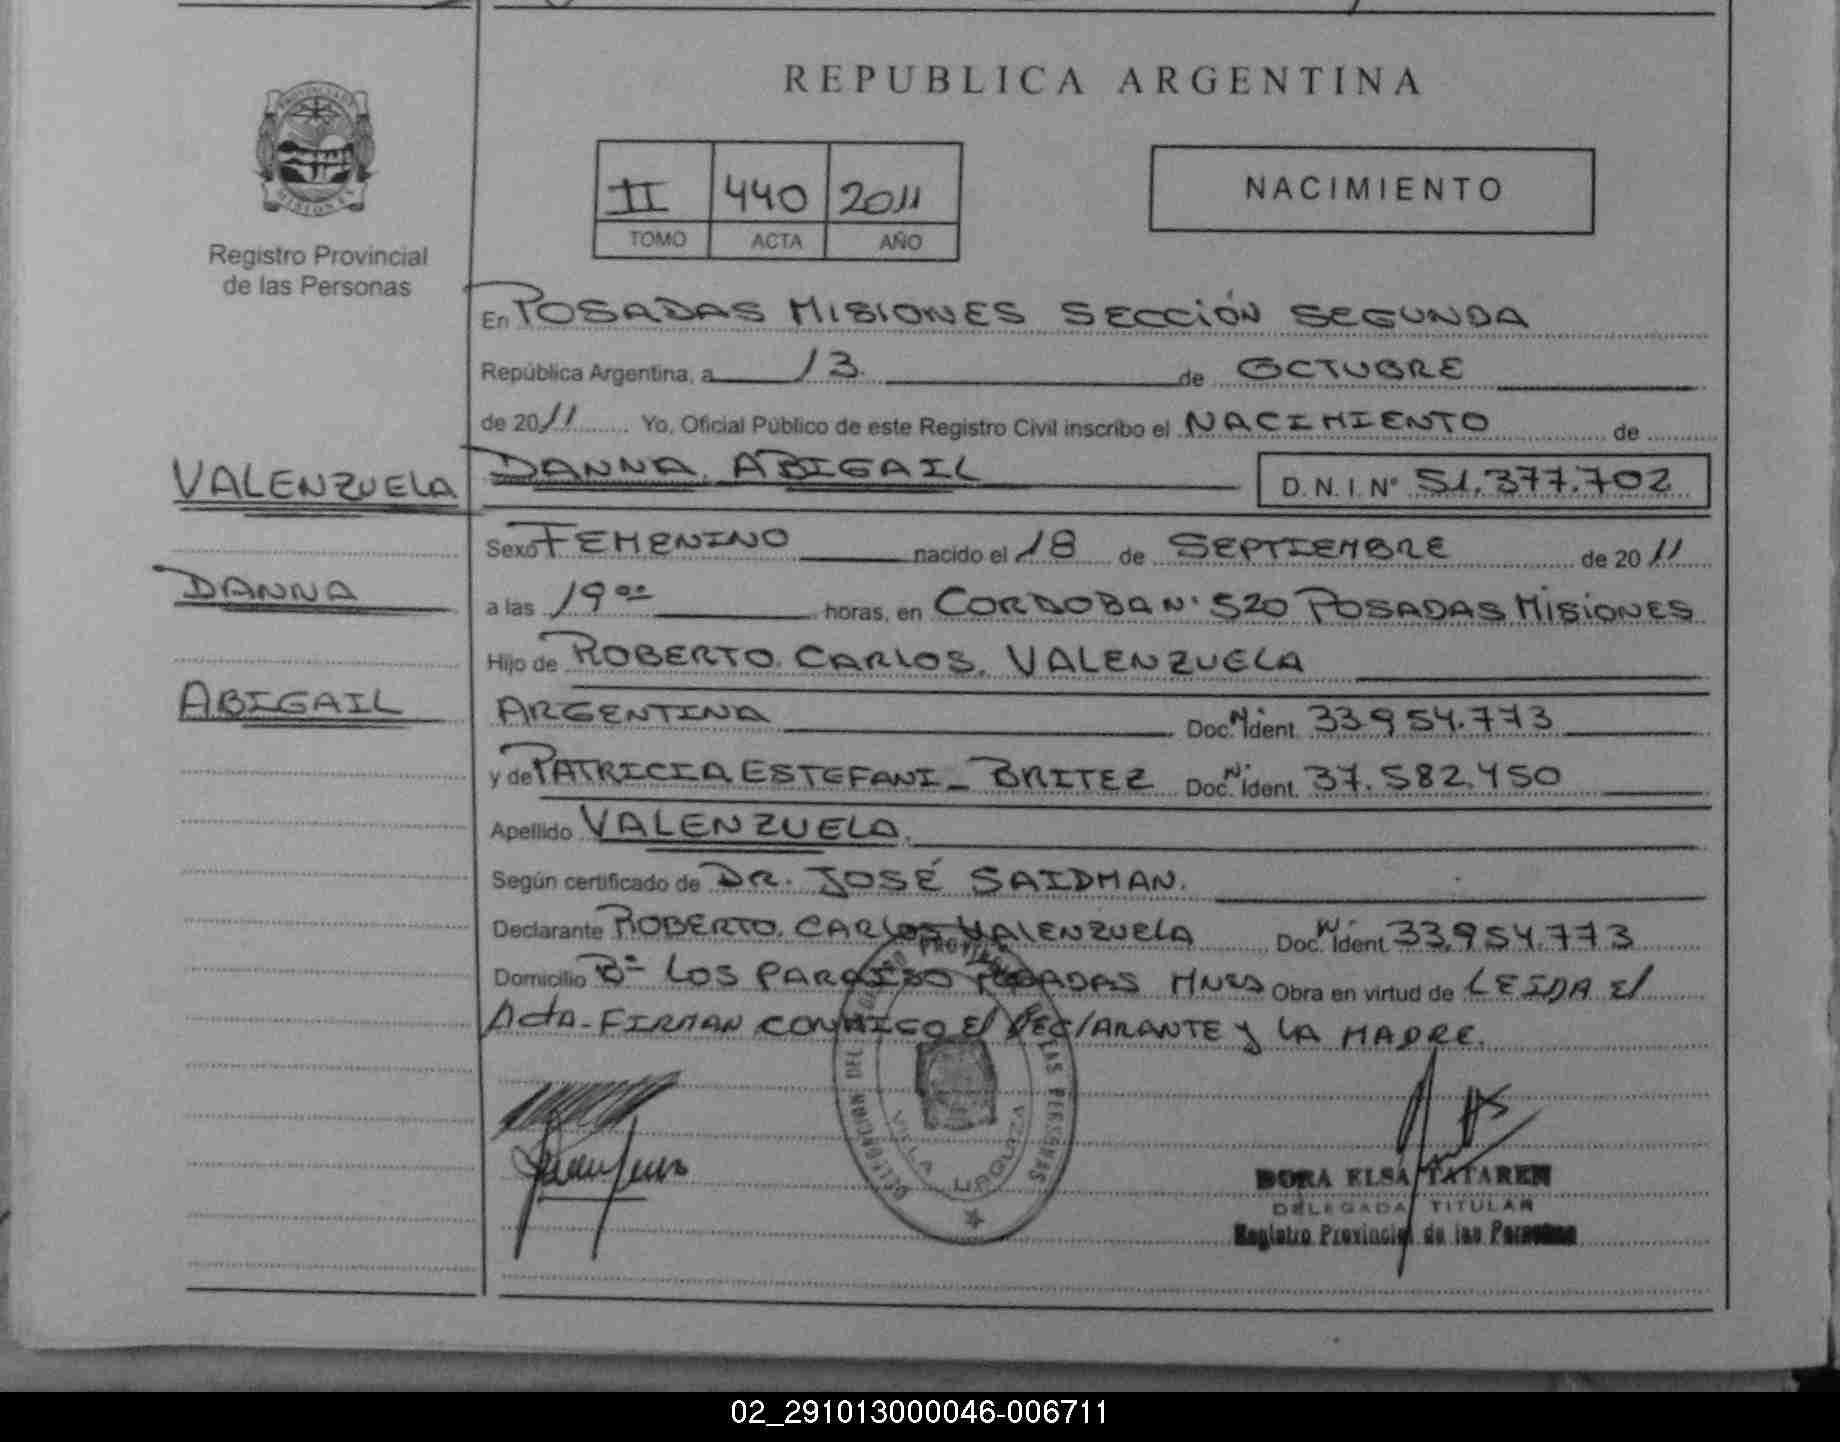 REPUBLICA ARGENTINA
PROVINCIA DE MISIONES
Registro Provincial
de las Personas
II 440 2011
TOMO ACTA AÑO
NACIMIENTO
En POSADAS MISIONES SECCIÓN SEGUNDA
República Argentina, a 13 de OCTUBRE
de 2011 Yo, Oficial Público de este Registro Civil inscribo el NACIMIENTO de
VALENZUELA
DANNA
ABIGAIL
DANNA, ABIGAIL D.N.I. N° 51.377.702
Sexo FEMENINO nacido el 18 de SEPTIEMBRE de 2011
a las 19 00 horas, en CORDOBA N° 520 POSADAS MISIONES
Hijo de ROBERTO. CARLOS. VALENZUELA
ARGENTINA Doc. N° Ident. 33.954.773
y de PATRICIA ESTEFANI - BRITEZ Doc. N° Ident. 37.582.450
Apellido VALENZUELA.
Según certificado de DR. JOSÉ SAIDMAN.
Declarante ROBERTO. CARLOS VALENZUELA Doc. N° Ident. 33.954.773
Domicilio B° LOS PARAISO POSADAS MNES Obra en virtud de LEIDA El
Acta - FIRMAN CONMIGO El DEClARANTE y LA MADRE.
DELEGACION DEL REGISTRO PROVINCIAL DE LAS PERSONAS
VILLA URQUIZA
DORA ELSA TATAREN
DELEGADA TITULAR
Registro Provincial de las Personas
02_291013000046-006711